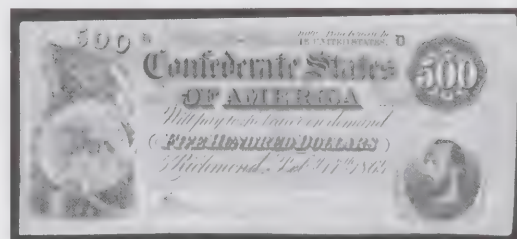 500 D
IN UNITED STATES. D
500
Confederate States
OF AMERICA
Will pay to the bearer on demand
FIVE HUNDRED DOLLARS
Richmond, Feb. 17th 186